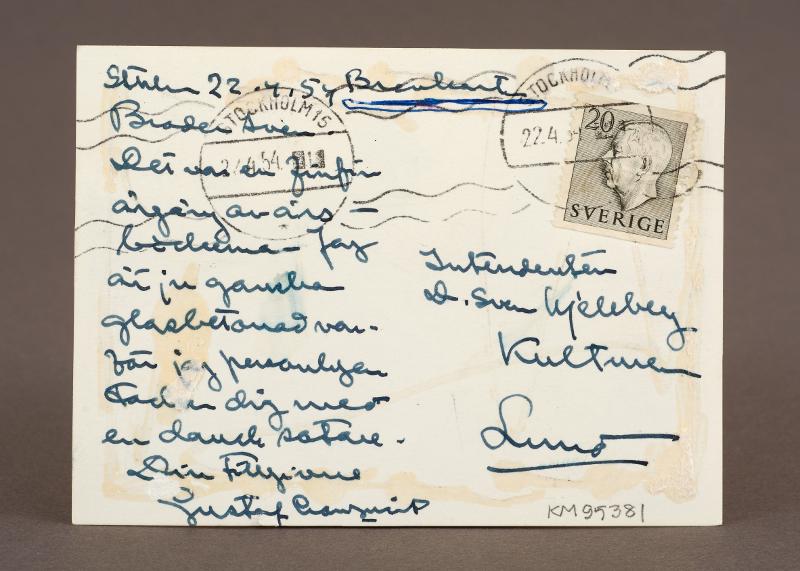 Sthlm 22.4.54 Brevkort
Broder Sven.
Det var en finfin
årgång av års-
böckerna. Jag
är ju ganska
glasbetonad var-
för jag personligen
tackar dig med
en dansk satare.
Din tillgivne
Gustaf
STOCKHOLM 15
22.4.54
STOCKHOLM
22.4.54
20
SVERIGE
Intendenten
D. Sven Kjellberg
Kultmen
Lund
KM 95381